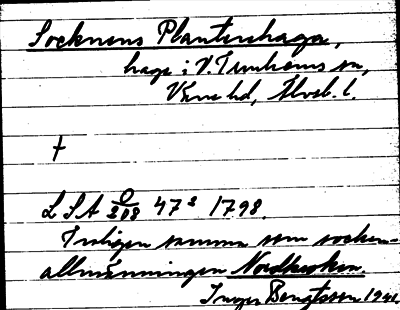 Socknens Plantenhaga,
hage i V. Tunhems sn,
Väne hd, Älvsb. l.
†
LSA O/208 47² 1798.
Troligen samma som socken-
allmänningen Nordkroken.
Inger Bengtsson 1941